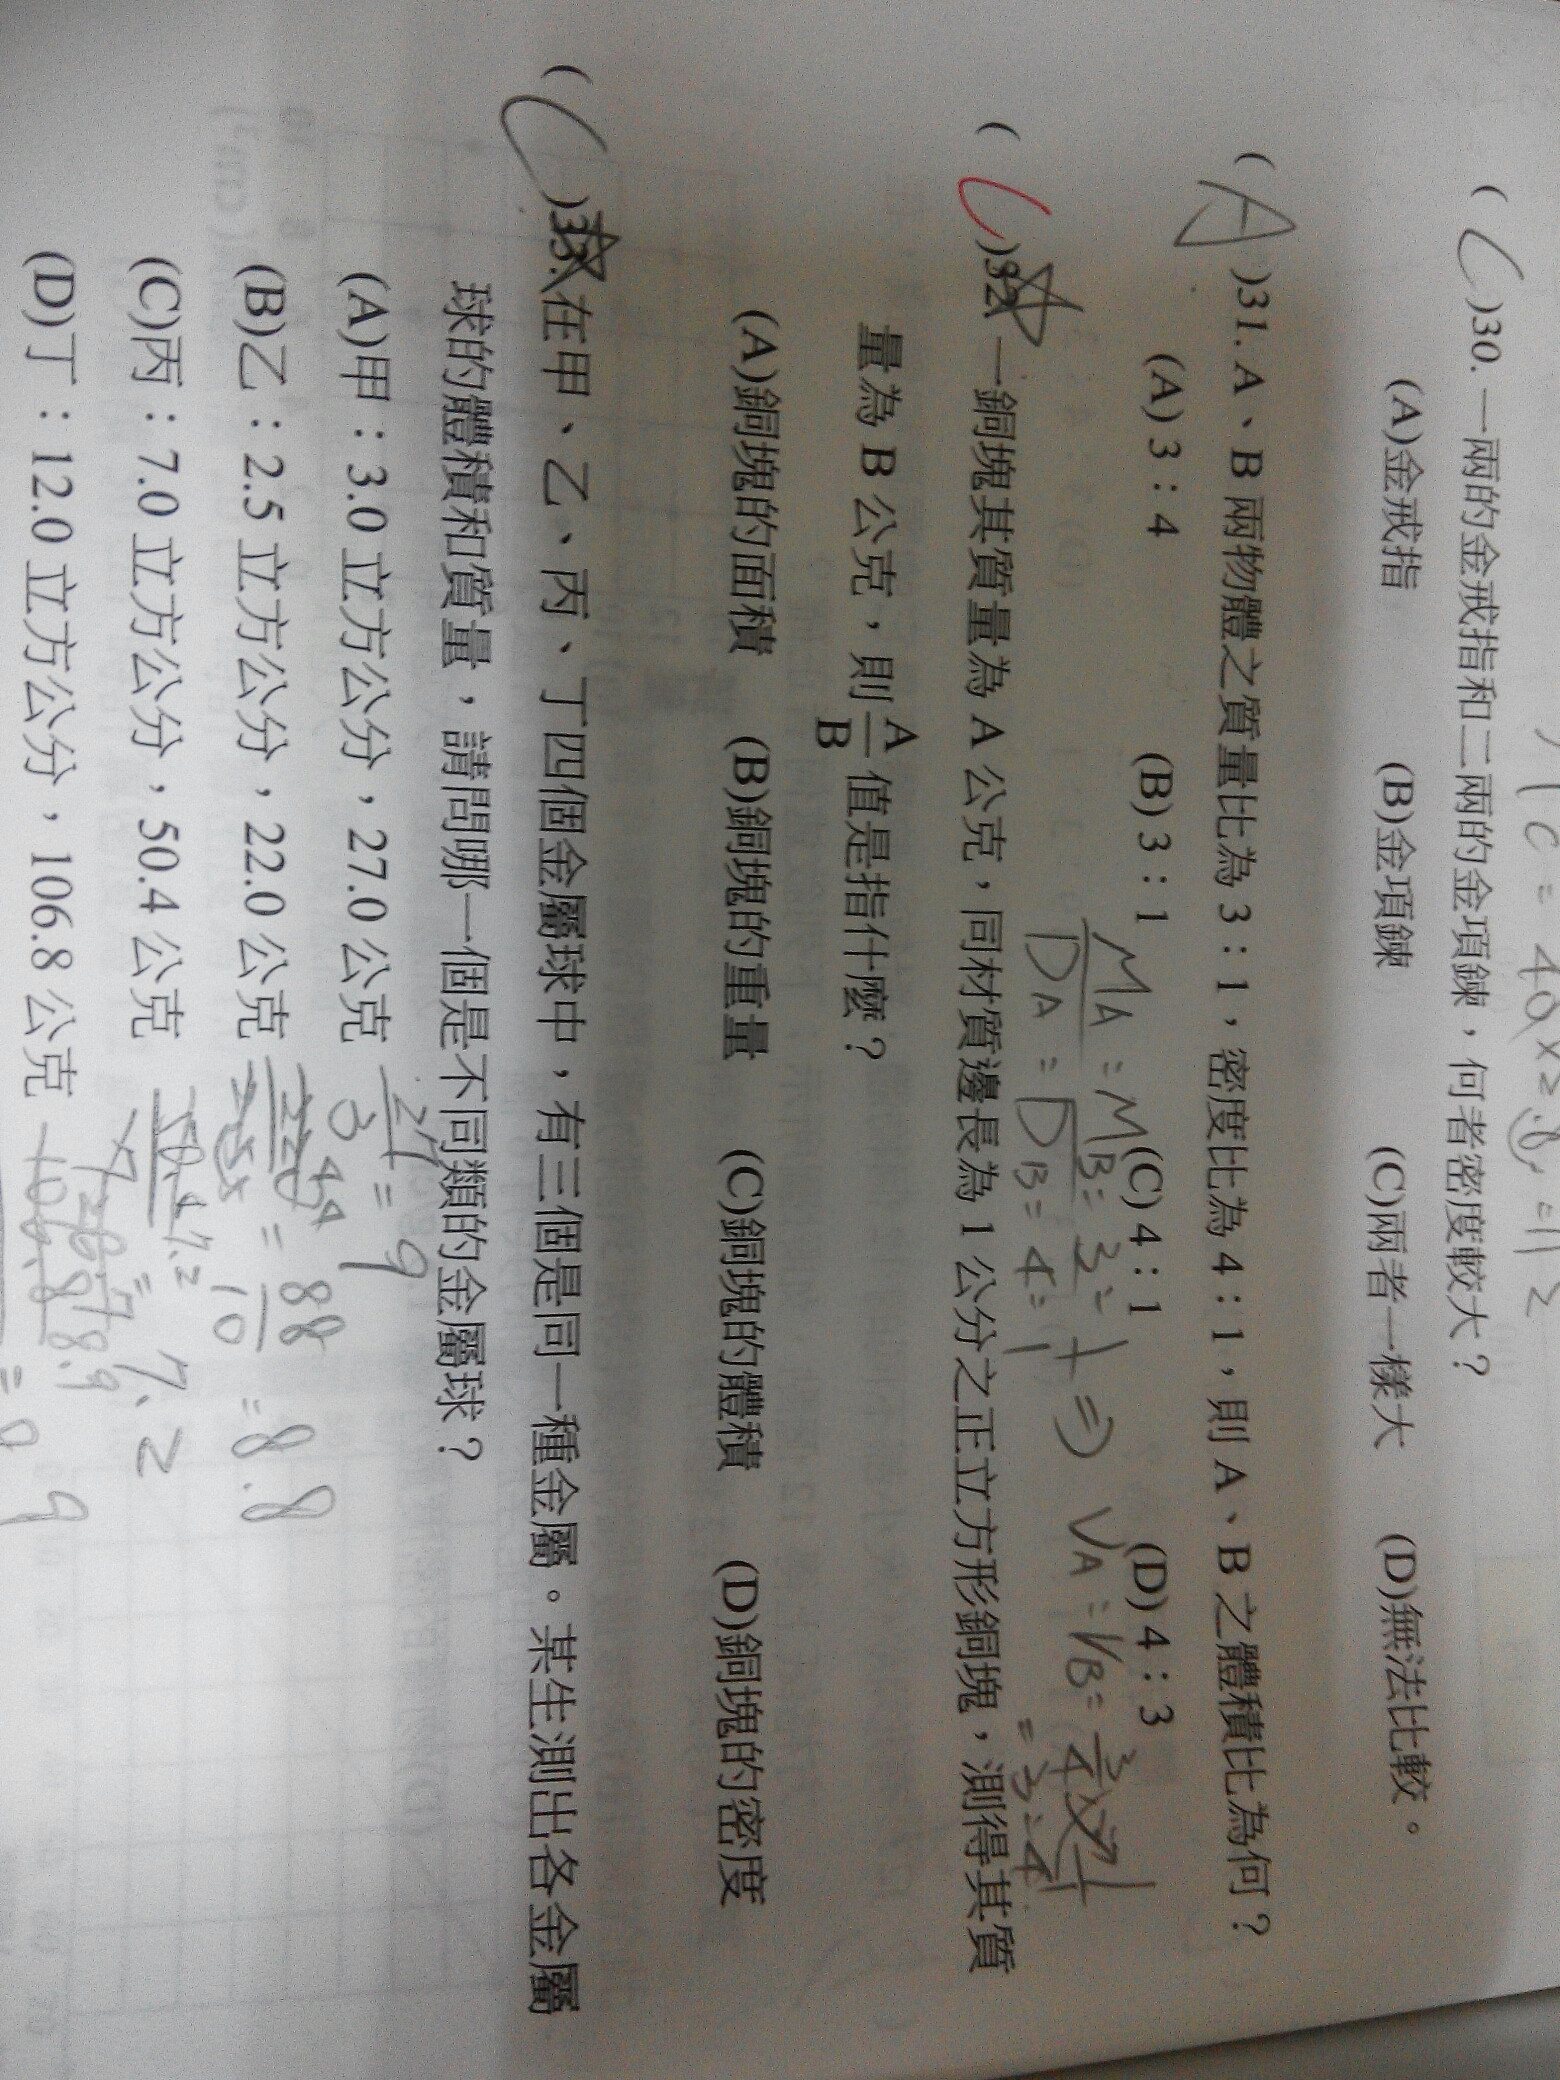 1C = 40×2.8 = 112
( C )30. 一兩的金戒指和二兩的金項鍊，何者密度較大？
(A)金戒指 (B)金項鍊 (C)兩者一樣大 (D)無法比較。
( A )31. A、B 兩物體之質量比為 3：1，密度比為 4：1，則 A、B 之體積比為何？
(A) 3：4 (B) 3：1 (C) 4：1 (D) 4：3
MA : MB = 3 : 1 ⇒ VA : VB =
DA : DB = 4 : 1 = 3 : 4
( C )32. 一銅塊其質量為 A 公克，同材質邊長為 1 公分之正立方形銅塊，測得其質
量為 B 公克，則 A/B 值是指什麼？
(A)銅塊的面積 (B)銅塊的重量 (C)銅塊的體積 (D)銅塊的密度
( C )33. 在甲、乙、丙、丁四個金屬球中，有三個是同一種金屬。某生測出各金屬
球的體積和質量，請問哪一個是不同類的金屬球？
(A)甲：3.0 立方公分，27.0 公克 27/3 = 9
(B)乙：2.5 立方公分，22.0 公克 = 88/10 = 8.8
(C)丙：7.0 立方公分，50.4 公克 7.2
(D)丁：12.0 立方公分，106.8 公克 8.9